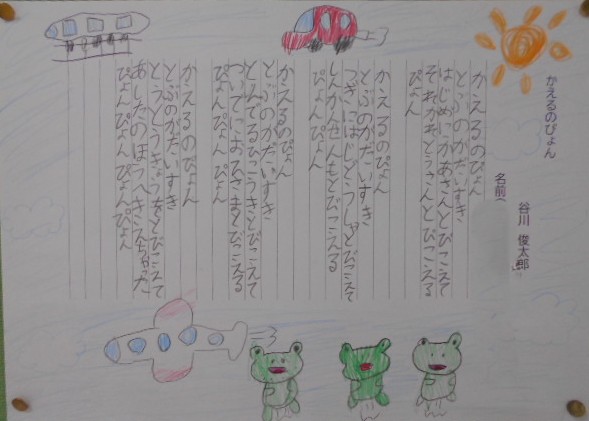 かえるのぴょん
谷川 俊太郎
名前(
かえるのぴょん
とぶのがだいすき
はじめにかあさんとびこえて
それからとうさんとびこえる
ぴょん
かえるのぴょん
とぶのがだいすき
つぎにはじどうしゃとびこえて
しんかんせんもとびこえる
ぴょんぴょん
かえるのぴょん
とぶのがだいすき
とんでるひこうきとびこえて
ついでにおひさまとびこえる
ぴょんぴょんぴょん
かえるのぴょん
とぶのがだいすき
とうとうきょうをとびこえて
あしたのほうへきえちゃった
ぴょんぴょんぴょんぴょん